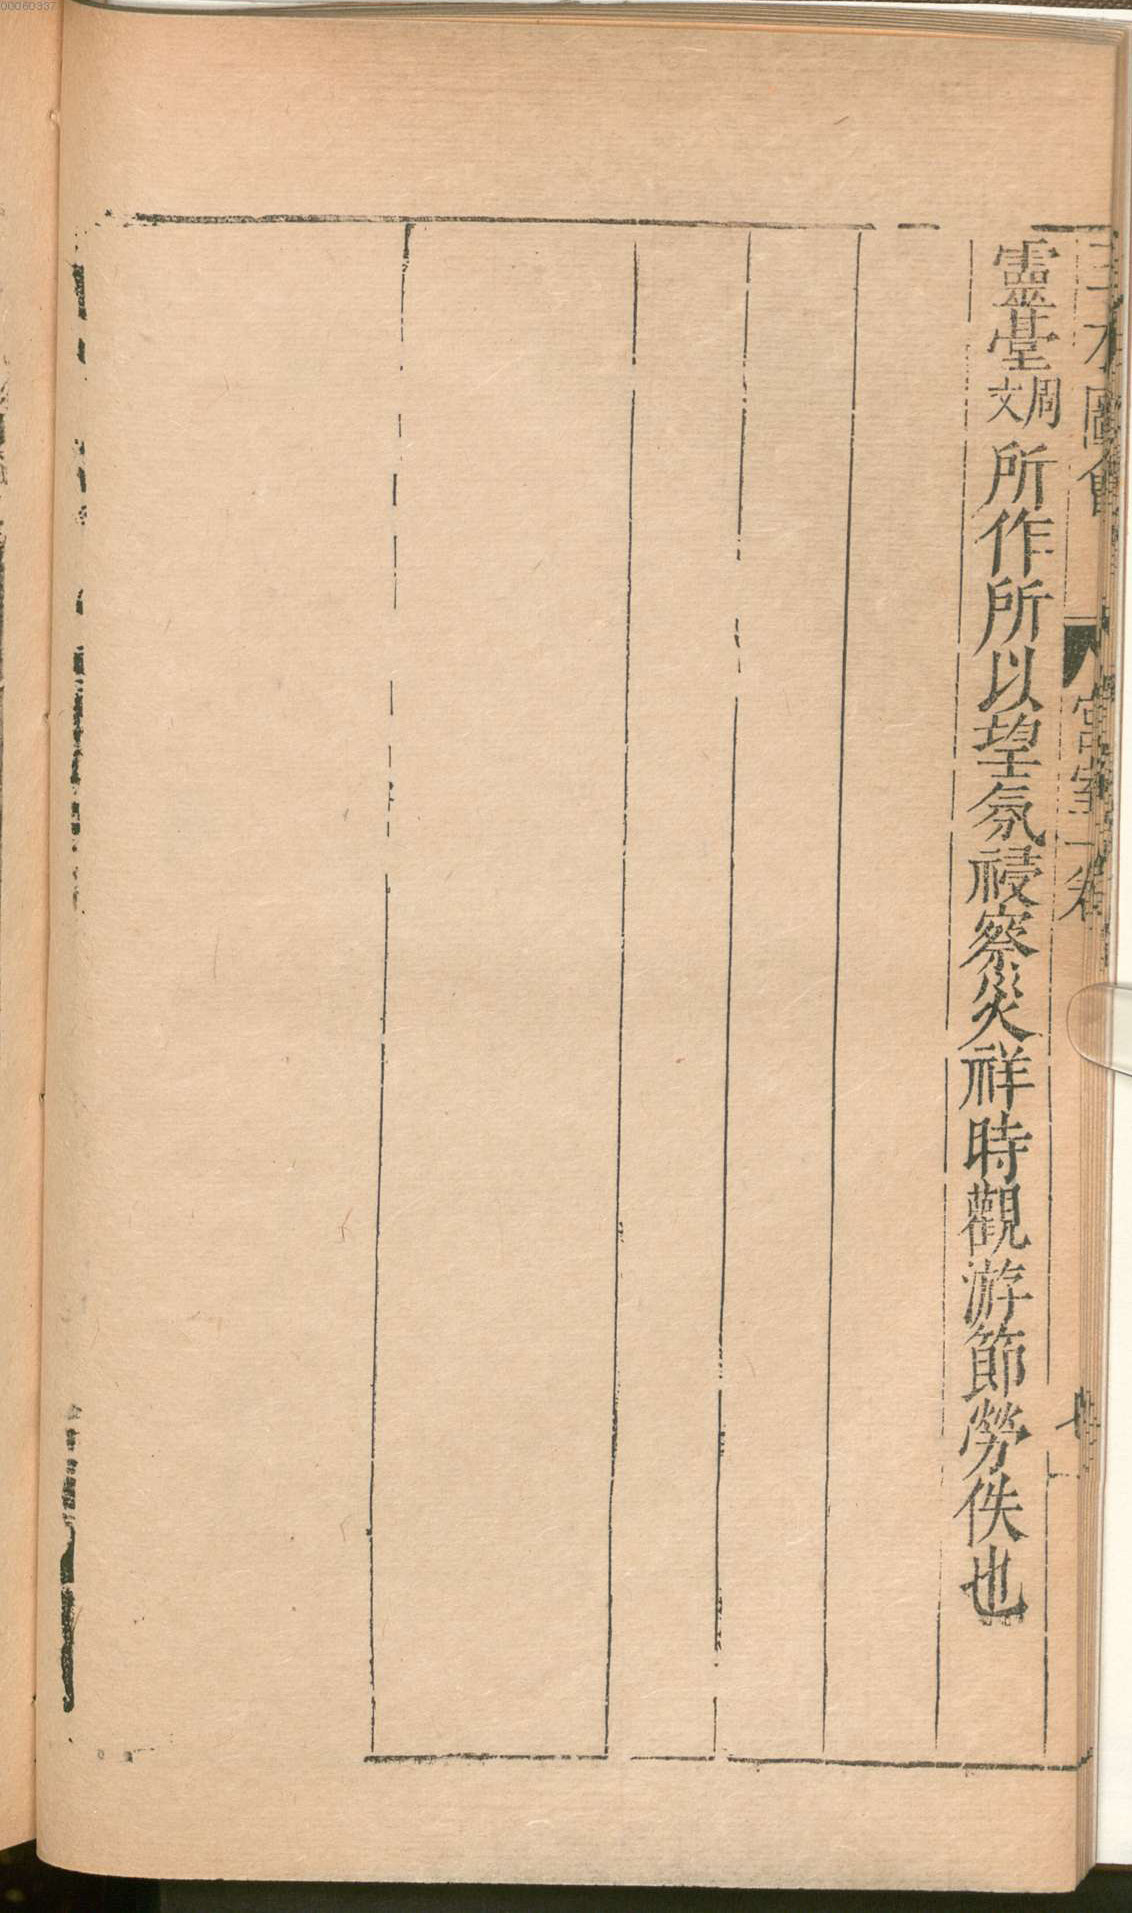 三才圖會 宮室一卷 七
靈臺周文所作所以望氛祲察災祥時觀游節勞佚也
00060337